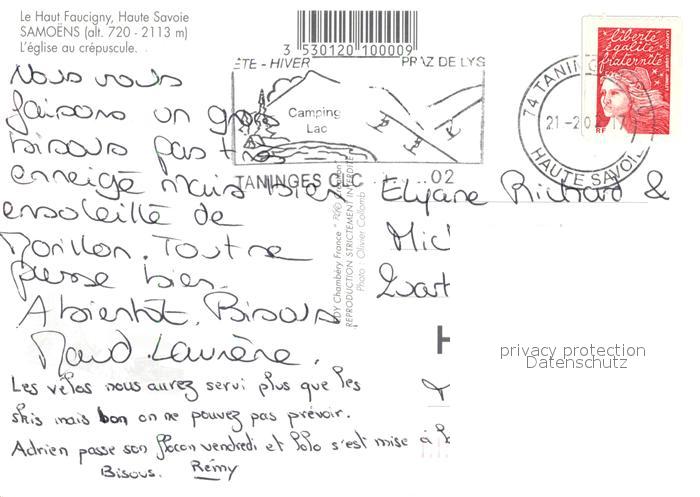 Le Haut Faucigny, Haute Savoie
SAMOËNS (alt. 720 - 2113 m)
L'église au crépuscule.
3 530120 100009
ÉTE - HIVER PRAZ DE LYS
Camping
Lac
TANINGES C.C. 02
74 TANING
21-2-02 17
HAUTE SAVOIE
liberté
égalité
fraternité
RF
Nous vous
faisons un gros
bisous pas très
enneigé mais bien
ensoleillé de
Morillon. Tout se
passe bien.
A bientôt. Bisous.
Maud Laurène.
Les vélos nous aurez servi plus que les
skis mais bon on ne pouvez pas prévoir.
Adrien passe son flocon vendredi et Lolo s'est mise à
Bisous. Rémy
Chambéry France
REPRODUCTION STRICTEMENT INTERDITE
Photo : Olivier Collomb
Elyane Richard &
Mic
privacy protection
Datenschutz